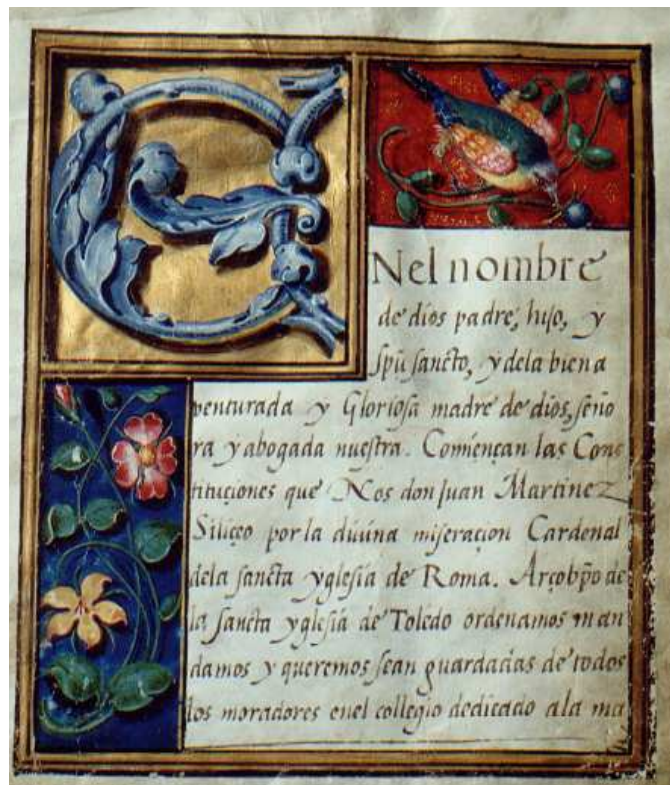 E
Nel nombre
de dios padre, hijo, y
spū sancto, y dela biena
venturada y Gloriosa madre de dios, seño
ra y abogada nuestra. Comiençan las Cons
tituçiones que Nos don Juan Martinez
Siliçeo por la diuina miseraçion Cardenal
dela sancta yglesia de Roma. Arçobp̄o de
la sancta yglesia de Toledo ordenamos man
damos y queremos sean guardadas de todos
los moradores enel collegio dedicado ala ma